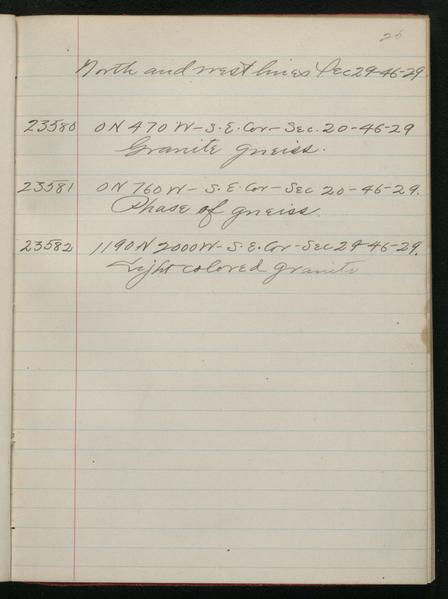 26
North and west lines Sec 29-46-29
23580 0 N 470 W - S.E. Cor - Sec. 20-46-29
Granite gneiss.
23581 0 N 760 W - S.E. Cor - Sec 20-46-29.
Phase of gneiss.
23582 1190 N 2000 W - S.E. Cor - Sec 29-46-29.
Light colored granite